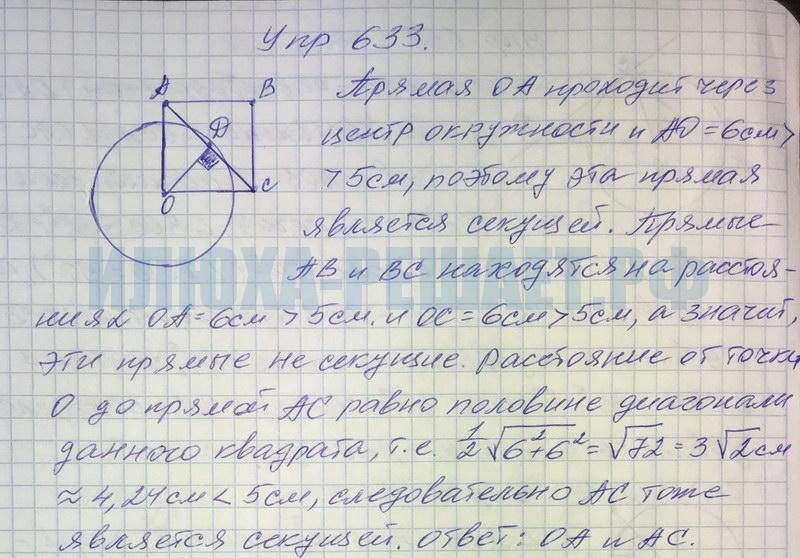 Упр 633.
A B
D
O C
Прямая ОА проходит через
центр окружности и АО = 6см >
> 5см, поэтому эта прямая
является секущей. Прямые
АВ и ВС находятся на расстоя-
ниях ОА = 6см > 5см. и ОС = 6см > 5см, а значит,
эти прямые не секущие. Расстояние от точки
О до прямой АС равно половине диагонали
данного квадрата, т.е. 1/2 √(6²+6²) = √72 = 3√2 см
≈ 4,24см < 5см, следовательно АС тоже
является секущей. Ответ: ОА и АС.
ИЛЮХА-РЕШАЕТ.РФ